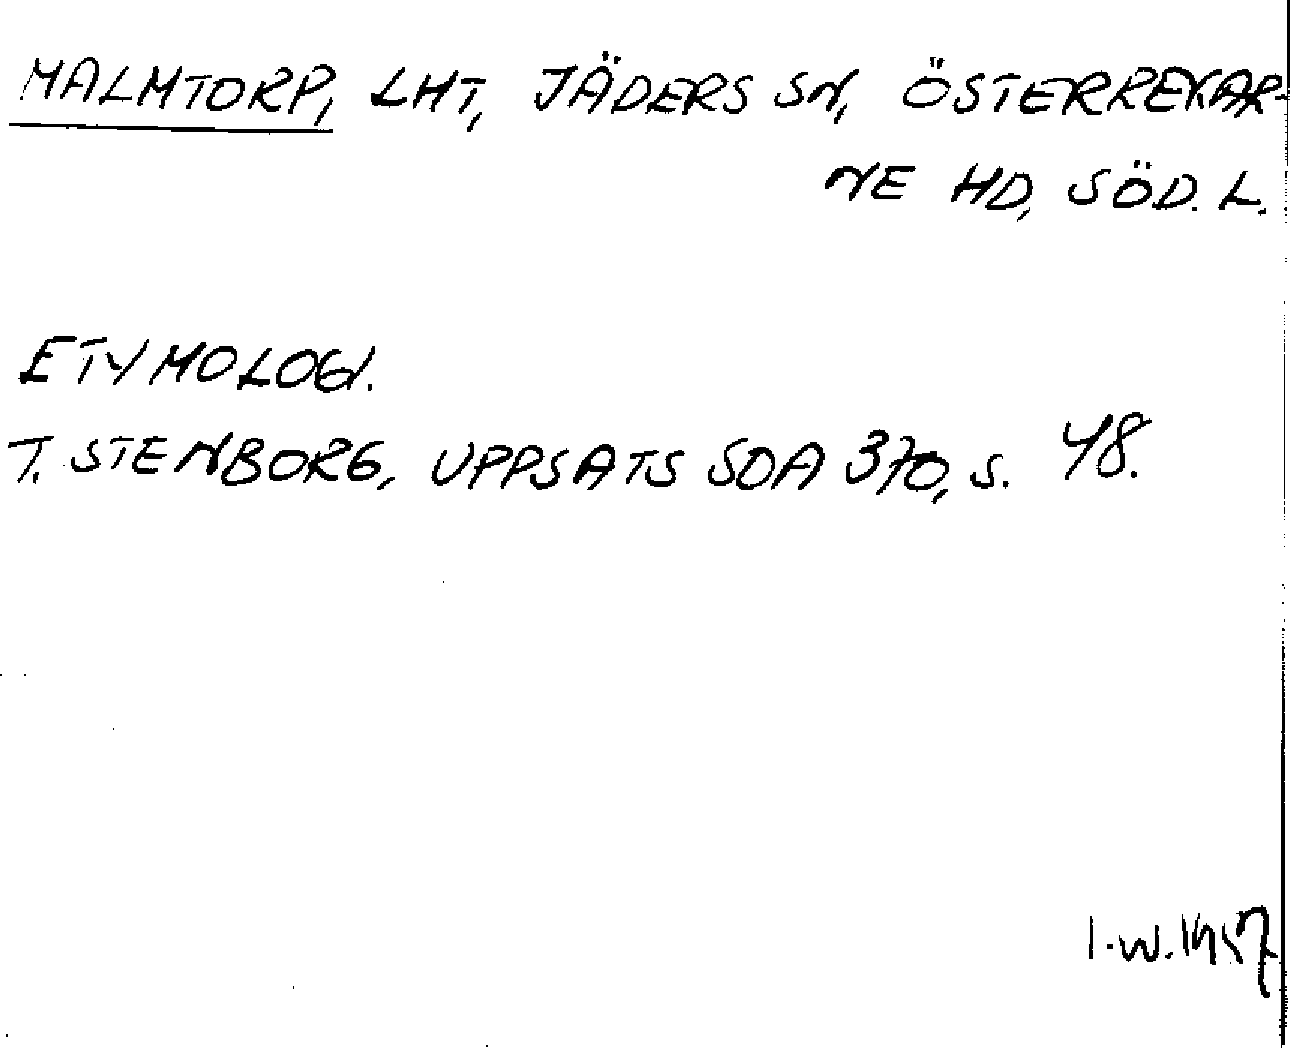 MALMTORP, LHT, JÄDERS SN, ÖSTERREKAR-
NE HD, SÖD. L.
ETYMOLOGI.
T. STENBORG, UPPSATS SOA 370, S. 48.
I.W. 1957